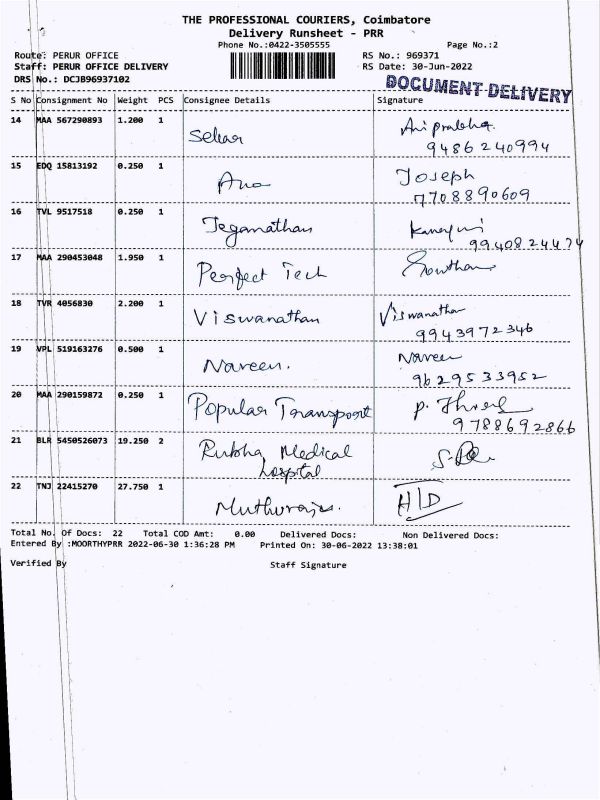 THE PROFESSIONAL COURIERS, Coimbatore
Delivery Runsheet - PRR
Phone No.:0422-3505555 Page No.:2
Route: PERUR OFFICE RS No.: 969371
Staff: PERUR OFFICE DELIVERY RS Date: 30-Jun-2022
DRS No.: DCJB96937102
DOCUMENT DELIVERY
S No Consignment No Weight PCS Consignee Details Signature
14 MAA 567290893 1.200 1 Sekar
9486240994
15 EDQ 15813192 0.250 1 Joseph
7708890609
16 TVL 9517518 0.250 1 Jeganathan
9940824474
17 MAA 290453048 1.950 1 Perfect Tech
18 TVR 4056830 2.200 1 Viswanathan Viswanathan
9943972346
19 VPL 519163276 0.500 1 Naveen. Naveen
9629533952
20 MAA 290159872 0.250 1 Popular Transport
9788692866
21 BLR 5450526073 19.250 2 Rubha Medical
hospital
22 TNJ 22415270 27.750 1 H/D
Total No. Of Docs: 22 Total COD Amt: 0.00 Delivered Docs: Non Delivered Docs:
Entered By :MOORTHYPRR 2022-06-30 1:36:28 PM Printed On: 30-06-2022 13:38:01
Verified By Staff Signature